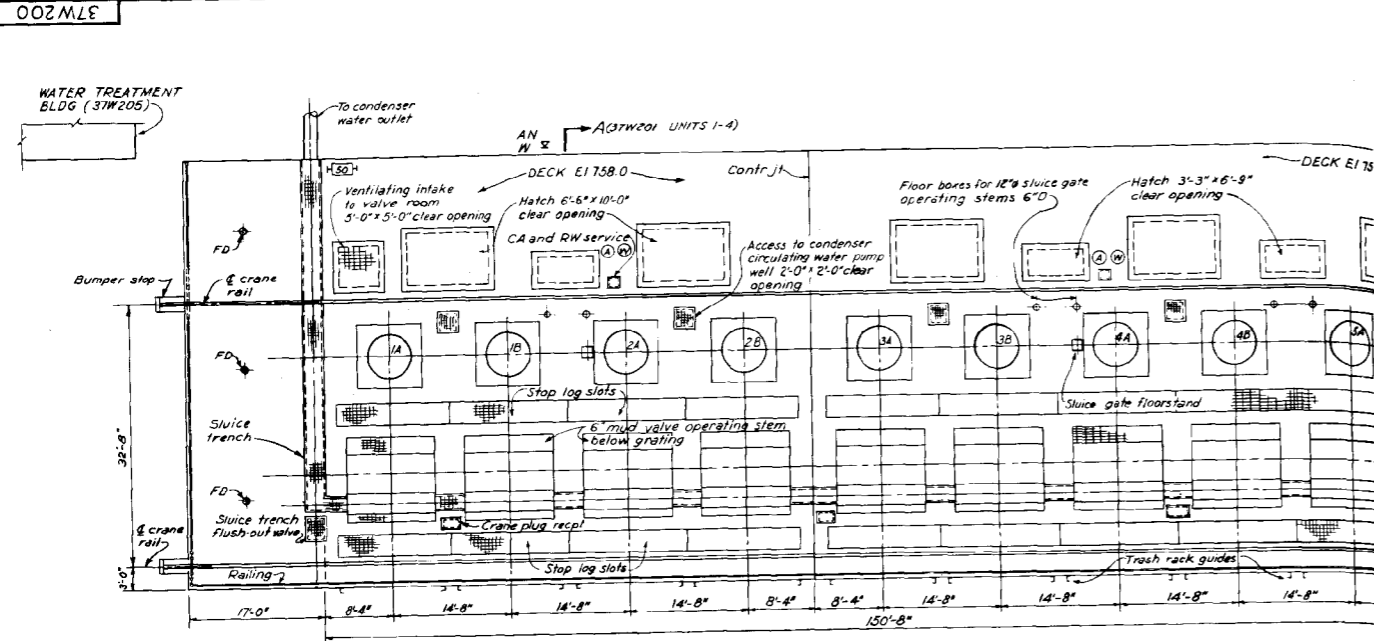 37W200
WATER TREATMENT
BLDG (37W205)
To condenser
water outlet
AN
W
A(37W201 UNITS 1-4)
50
DECK El 758.0
Contr jt
DECK El 75
Ventilating intake
to valve room
5'-0" x 5'-0" clear opening
Hatch 6'-6" x 10'-0"
clear opening
Floor boxes for 12"ø sluice gate
operating stems 6"D
Hatch 3'-3" x 6'-9"
clear opening
CA and RW service
A W
A W
Access to condenser
circulating water pump
well 2'-0" x 2'-0" clear
opening
FD
Bumper stop
℄ crane
rail
1A
1B
2A
2B
3A
3B
4A
4B
5A
FD
Stop log slots
Sluice gate floorstand
Sluice
trench
6" mud valve operating stem
below grating
32'-8"
FD
Sluice trench
flush-out valve
Crane plug recpt
℄ crane
rail
Stop log slots
Trash rack guides
Railing
3'-0"
17'-0"
8'-4"
14'-8"
14'-8"
14'-8"
8'-4"
8'-4"
14'-8"
14'-8"
14'-8"
14'-8"
150'-8"